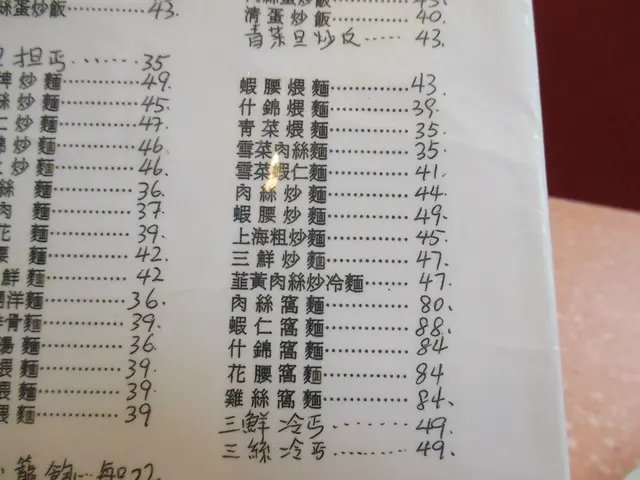 絲蛋炒飯……43.
担丐……35
炒麵……49.
絲炒麵……45.
仁炒麵……47.
炒麵……46.
炒麵……46.
絲 麵……36.
肉 麵……37.
花 麵……39.
腰 麵……42.
鮮麵……42
洋麵……36.
骨麵……39.
湯麵……36.
煨麵……39.
煨麵……39.
煨麵……39
籠飽…22
絲蛋炒飯……43.
清蛋炒飯……40.
青菜旦炒反……43.
蝦腰煨麵……43.
什錦煨麵……39.
青菜煨麵……35.
雪菜肉絲麵……35.
雪菜蝦仁麵……41.
肉絲炒麵……44
蝦腰炒麵……49.
上海粗炒麵……45.
三鮮炒麵……47.
韮黃肉絲炒冷麵……47.
肉絲窩麵……80.
蝦仁窩麵……88.
什錦窩麵……84
花腰窩麵……84
雞絲窩麵……84.
三鮮冷丐……49.
三絲冷丐……49.